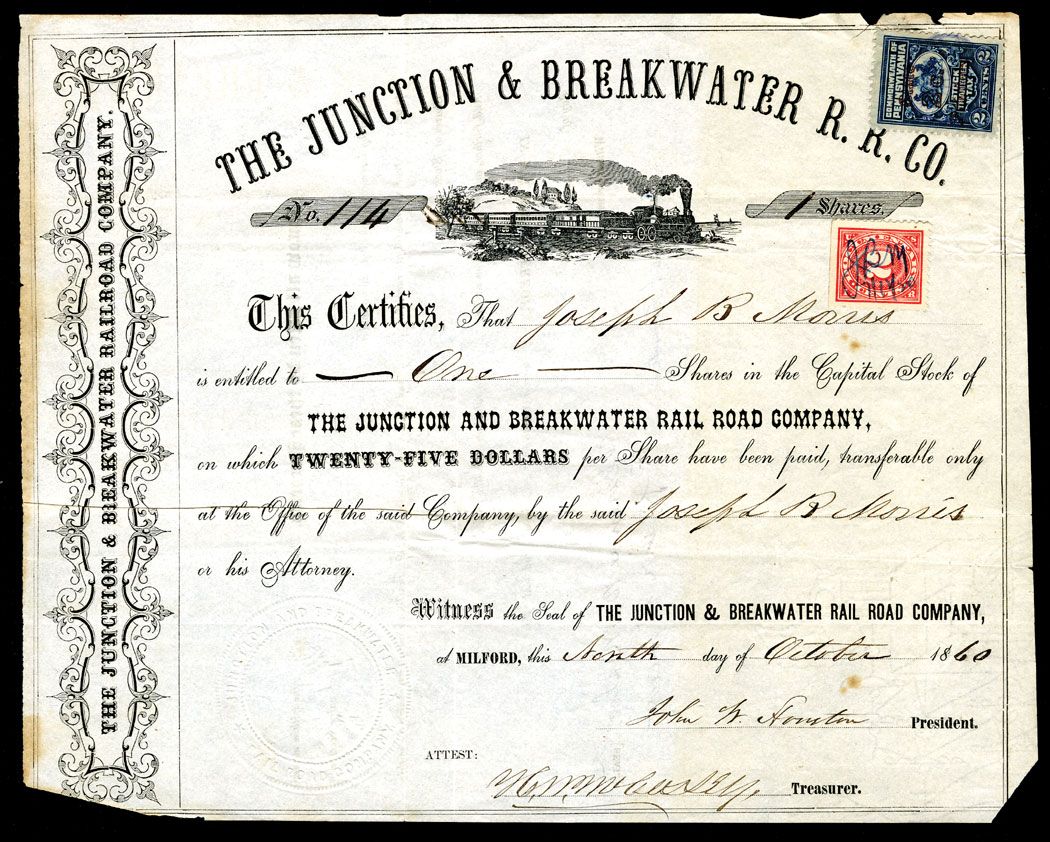 THE JUNCTION & BREAKWATER R. R. CO.
COMMONWEALTH OF PENNSYLVANIA
STOCK TRANSFER TAX
2 CENTS 2
No. 114
1 Shares.
2
JBM
This Certifies, That Joseph B Morris
is entitled to One Shares in the Capital Stock of
THE JUNCTION AND BREAKWATER RAIL ROAD COMPANY,
on which TWENTY-FIVE DOLLARS per Share have been paid, transferable only
at the Office of the said Company, by the said Joseph B Morris
or his Attorney.
Witness the Seal of THE JUNCTION & BREAKWATER RAIL ROAD COMPANY,
at MILFORD, this day of October 1860
John W Houston President.
ATTEST:
Treasurer.
THE JUNCTION & BREAKWATER RAILROAD COMPANY.